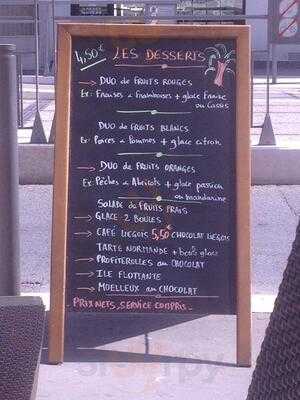 4,50€ LES DESSERTS
DUO de FRUITS ROUGES
Ex: Fraises & Framboises + glace Fraise
ou Cassis
DUO de FRUITS BLANCS
Ex: Poires & Pommes + glace citron
DUO de FRUITS ORANGES
Ex: Pêches & Abricots + glace passion
ou mandarine
SALADE de FRUITS FRAIS
GLACE 2 BOULES
CAFÉ LIEGOIS 5,50€ CHOCOLAT LIEGOIS
TARTE NORMANDE + boule glace
PROFITEROLES au CHOCOLAT
ILE FLOTTANTE
MOELLEUX au CHOCOLAT
- PRIX NETS, SERVICE COMPRIS -